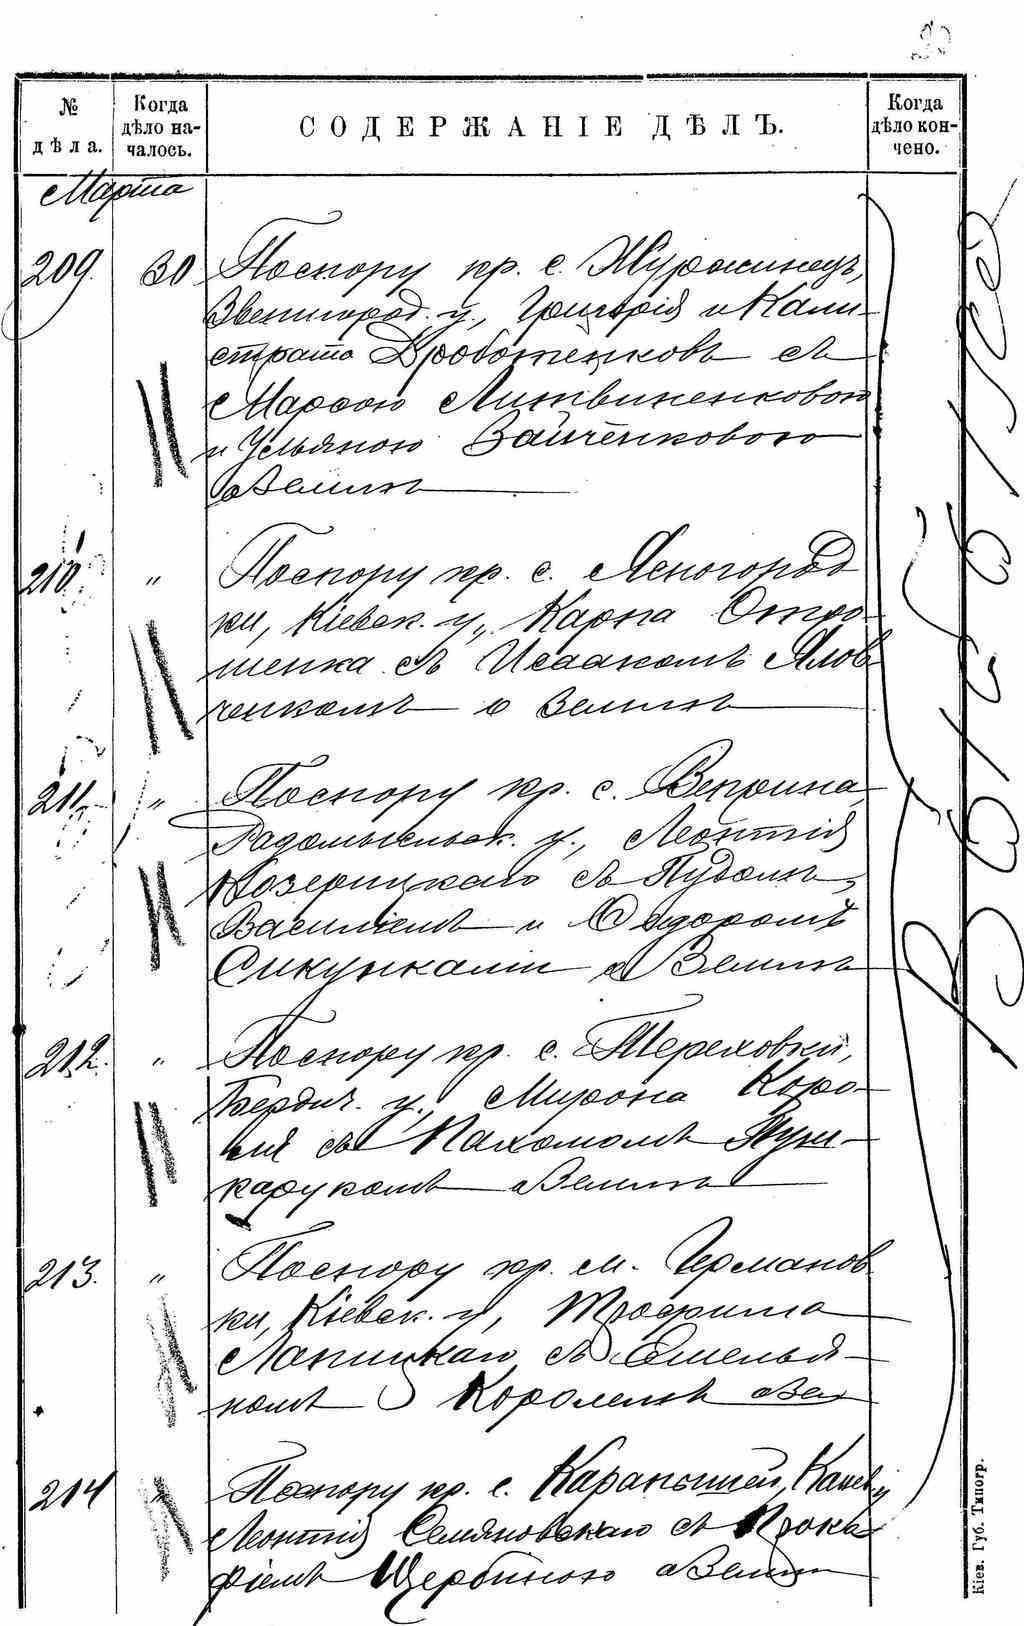 № дѣла.
Когда дѣло началось.
СОДЕРЖАНІЕ ДѢЛЪ.
Когда дѣло кончено.
Марта
209. 30 По спору кр. с. Журжинецъ,
Звенигород. у., Григорія и Кали-
страта Дроботенковъ съ
Марѳою Литвиненковою
и Ульяною Зайченковою
о землѣ
210. " По спору кр. с. Ясногород
ки, Кіевск. у., Карпа Отро-
шенка съ Исаакомъ Ялов
ченкомъ о землѣ
211. " По спору кр. с. Веприна
Радомысльск. у., Леонтія
Козерицкаго съ
Василіемъ и Ѳедоромъ
Сикунками о землѣ
212. " По спору кр. с. Тереховки,
Бердич. у., Мирона Коро-
ля съ Пахомомъ Пуш-
карукомъ о землѣ
213. " По спору кр. м. Германов
ки, Кіевск. у., Трофима
Лапицкаго съ Емелья-
номъ Королемъ о зем
214 " По спору кр. с. Карапышей, Канев у
Леонтія Семяновскаго съ Проко
фіемъ Щербиною о землѣ
Кіев. Губ. Типогр.